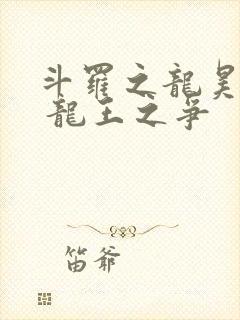 斗羅之龍昊
龍王之爭
笛爺